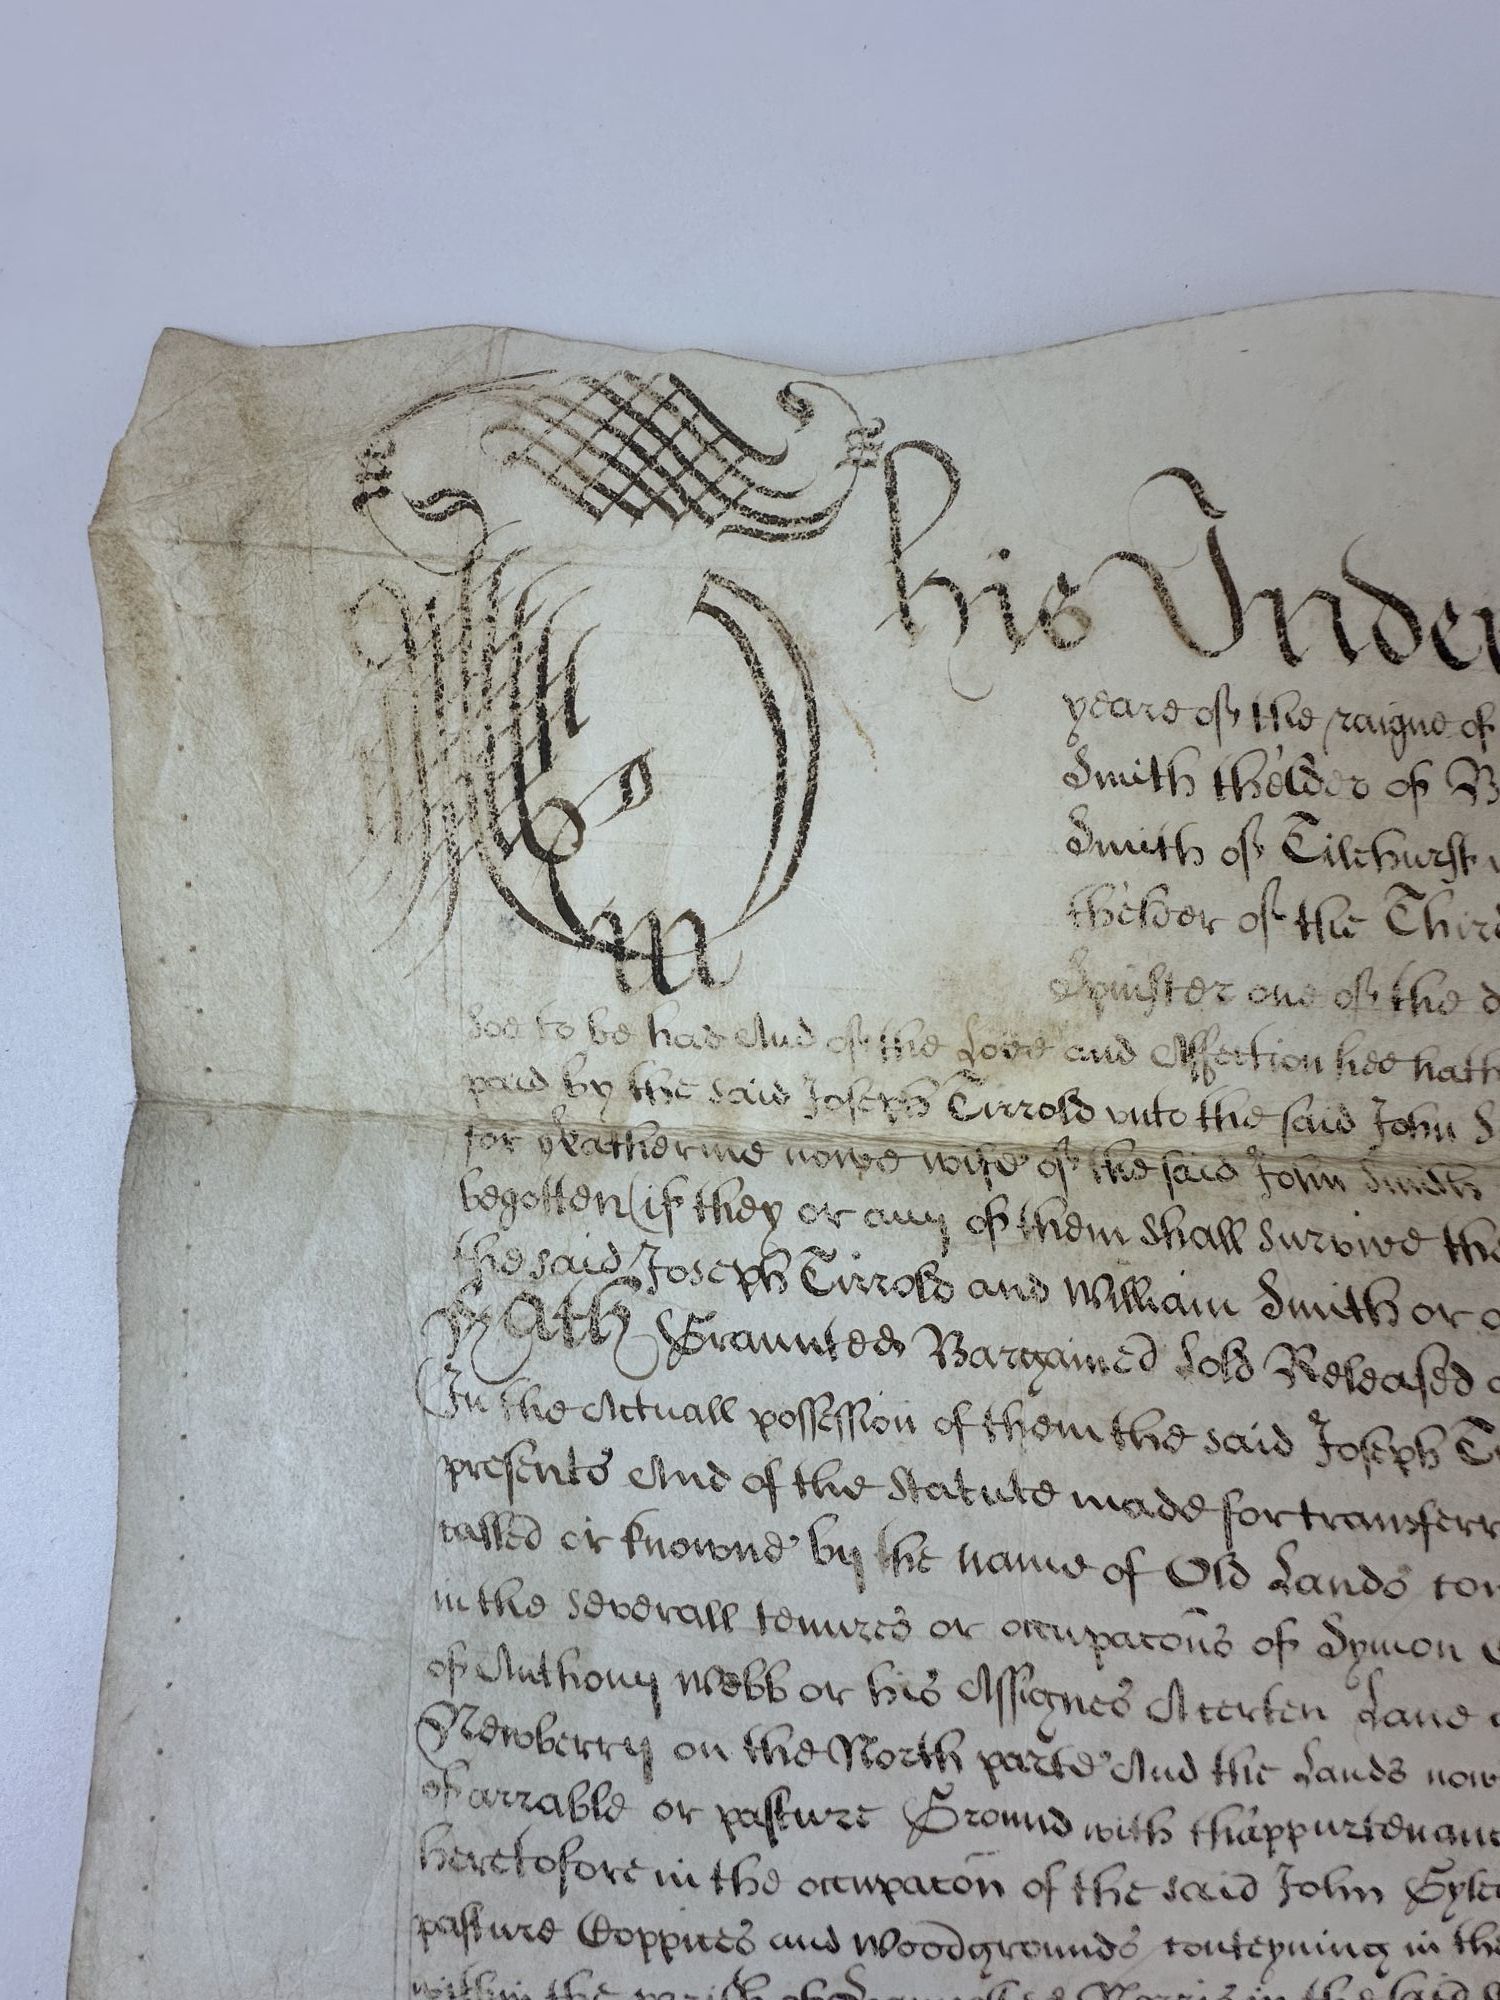 This Inden
yeare of the raigne of
Smith thelder of B
Smith of Tilehurst
thelder of the Third
Spinster one of the d
soe to be had And of the Love and Affection hee hath
paid by the said Joseph Tirrold unto the said John S
for Katherine nowe wife of the said John Smith
begotten (if they or any of them shall survive the
the said Joseph Tirrold and William Smith or o
Hath Graunted Bargained Sold Released
In the Actuall possession of them the said Joseph Ti
presents And of the Statute made for transferr
called or knowne by the name of Old Lands con
in the severall tenures or occupacons of Symon
of Anthony Webb or his Assignes A certen Lane
Newberry on the North parte And the Lands now
of arrable or pasture Ground with thappurtenanc
heretofore in the occupacon of the said John Syle
pasture Coppices and Woodgrounds conteyning in the
within the parish of Morris in the said